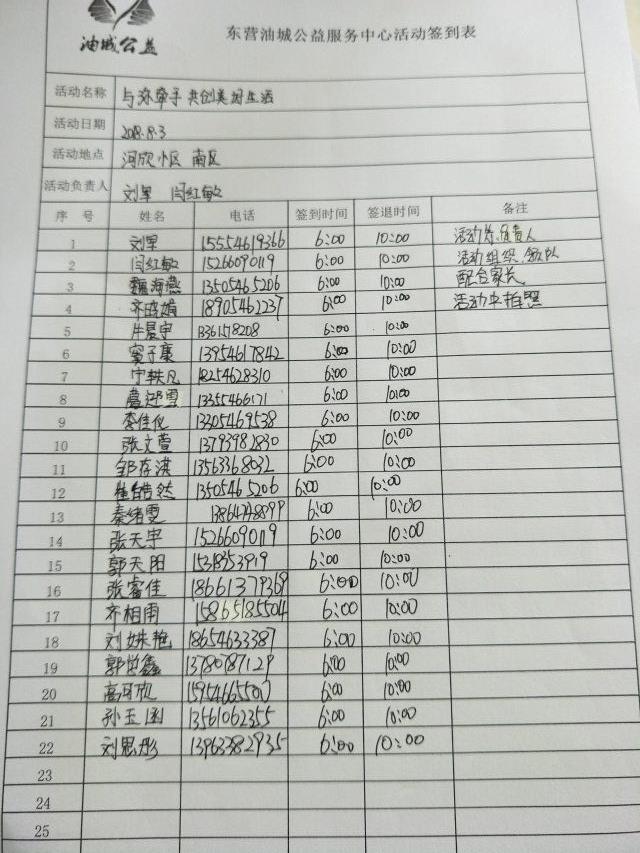 油城公益
东营油城公益服务中心活动签到表
活动名称 与你牵手 共创美好生活
活动日期 2018.8.3
活动地点 河欣小区 南区
活动负责人 刘军 闫红敏
序 号 姓名 电话 签到时间 签退时间 备注
1 刘军 15554619366 6:00 10:00 活动总负责人
2 闫红敏 15266090119 6:00 10:00 活动组织、领队
3 魏海燕 13505465206 6:00 10:00 配合家长
4 齐晓娟 18905462237 6:00 10:00 活动中拍照
5 6:00 10:00
6 窦子康 13954617842 6:00 10:00
7 宁轶凡 18254628310 6:00 10:00
8 13355466171 6:00 10:00
9 李佳仪 13305469538 6:00 10:00
10 张文萱 13793982830 6:00 10:00
11 邹存淇 13563368032 6:00 10:00
12 崔皓然 13505465206 6:00 10:00
13 秦绪雯 6:00 10:00
14 张天宇 15266090119 6:00 10:00
15 郭天阳 15318353919 6:00 10:00
16 张睿佳 18661379369 6:00 10:00
17 齐相雨 15865185504 6:00 10:00
18 刘姝艳 18654633387 6:00 10:00
19 郭哲鑫 13780787129 6:00 10:00
20 高可欣 6:00 10:00
21 孙玉函 13561062355 6:00 10:00
22 刘思彤 13963382935 6:00 10:00
23
24
25